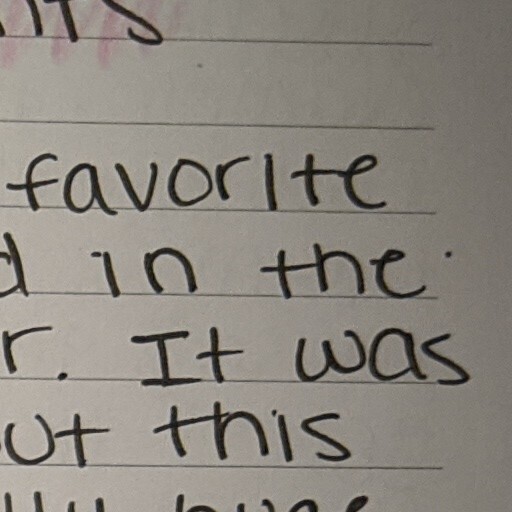 favorite
in the
r. It was
ut this